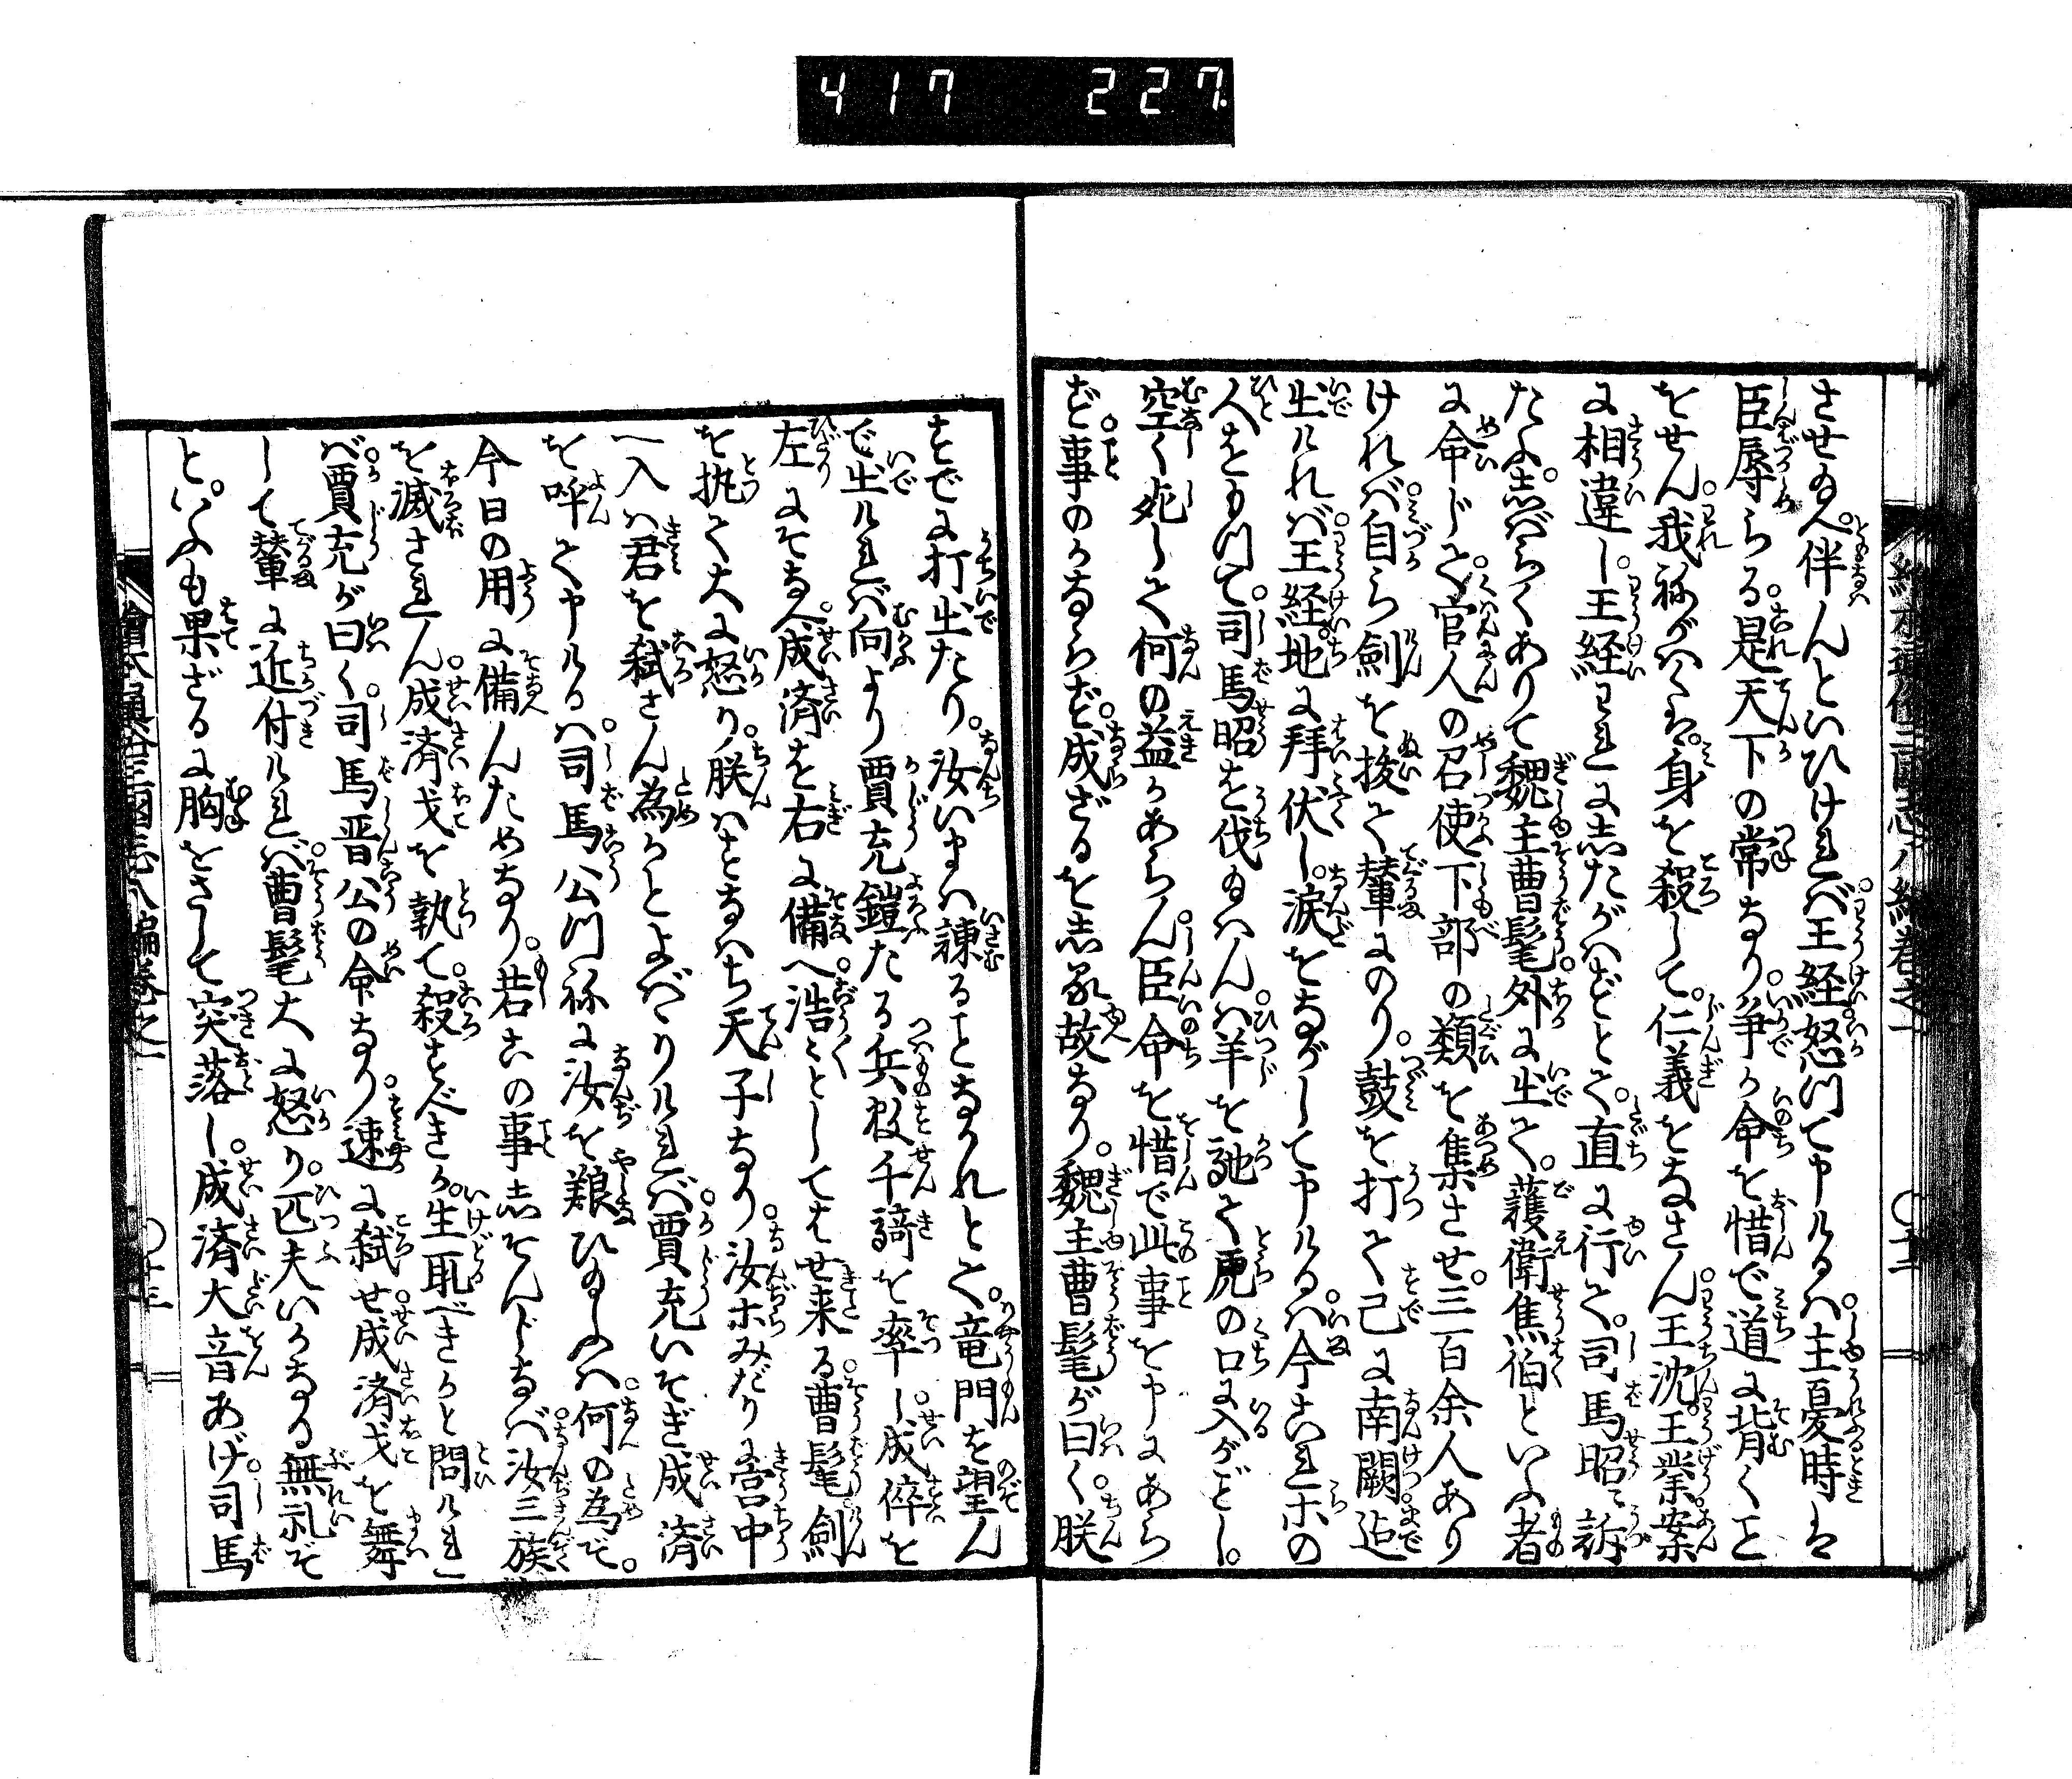 417 227
させ玉へ。伴んといひければ王経怒つて申けるハ主憂時は
臣辱らる是天下の常なり。争か命を惜で道に背くこと
をせん。我祢がハくハ身を殺して。仁義をなさん王沈王業案
に相違し。王経われにしたがハずとて。直に行て。司馬昭に訴
たふ。しバらくありて魏主曹髦外に出て。護衛焦伯といふ者
に命じて。官人の召使下部の類を集させ。三百余人あり
けれバ。自ら剣を抜て輦にのり。鼓を打て已に南闕迄
出けれバ。王経地に拝伏し。涙をながして申けるハ。今これ等の
人をもつて。司馬昭を伐玉ハんハ羊を馳て虎の口に入がごとし。
空く死して何の益かあらん。臣命を惜で此事を申にあら
ず。事のかならず成ざるをしる故なり。魏主曹髦が曰く。朕
すでに打出たり。汝いまハ諫ることなかれとて。竜門を望ん
で出ければ向より賈充鎧たる兵数千騎を率し。成倅を
左にそなへ。成済を右に備へ浩々としてはせ来る。曹髦剣
を執て大に怒り。朕ハすなハち天子なり。汝等みだりに宮中
へ入ハ君を弑さん為かとよバゝりければ。賈充いそぎ成済
を呼て申けるハ。司馬公門祢に汝を養ひ玉ふハ。何の為ぞ。
今日の用に備んためなり。若この事しそんじなバ。汝三族
を滅されん。成済戈を執て。殺すべきか。生取べきかと問けれ
バ。賈充が曰く。司馬晋公の命なり。速に弑せ。成済戈を舞
して輦に近付ければ。曹髦大に怒り。匹夫いかなる無礼ぞ
と。いふも果ざるに胸をさして突落し。成済大音あげ。司馬
繪本通俗三國志八編巻之一